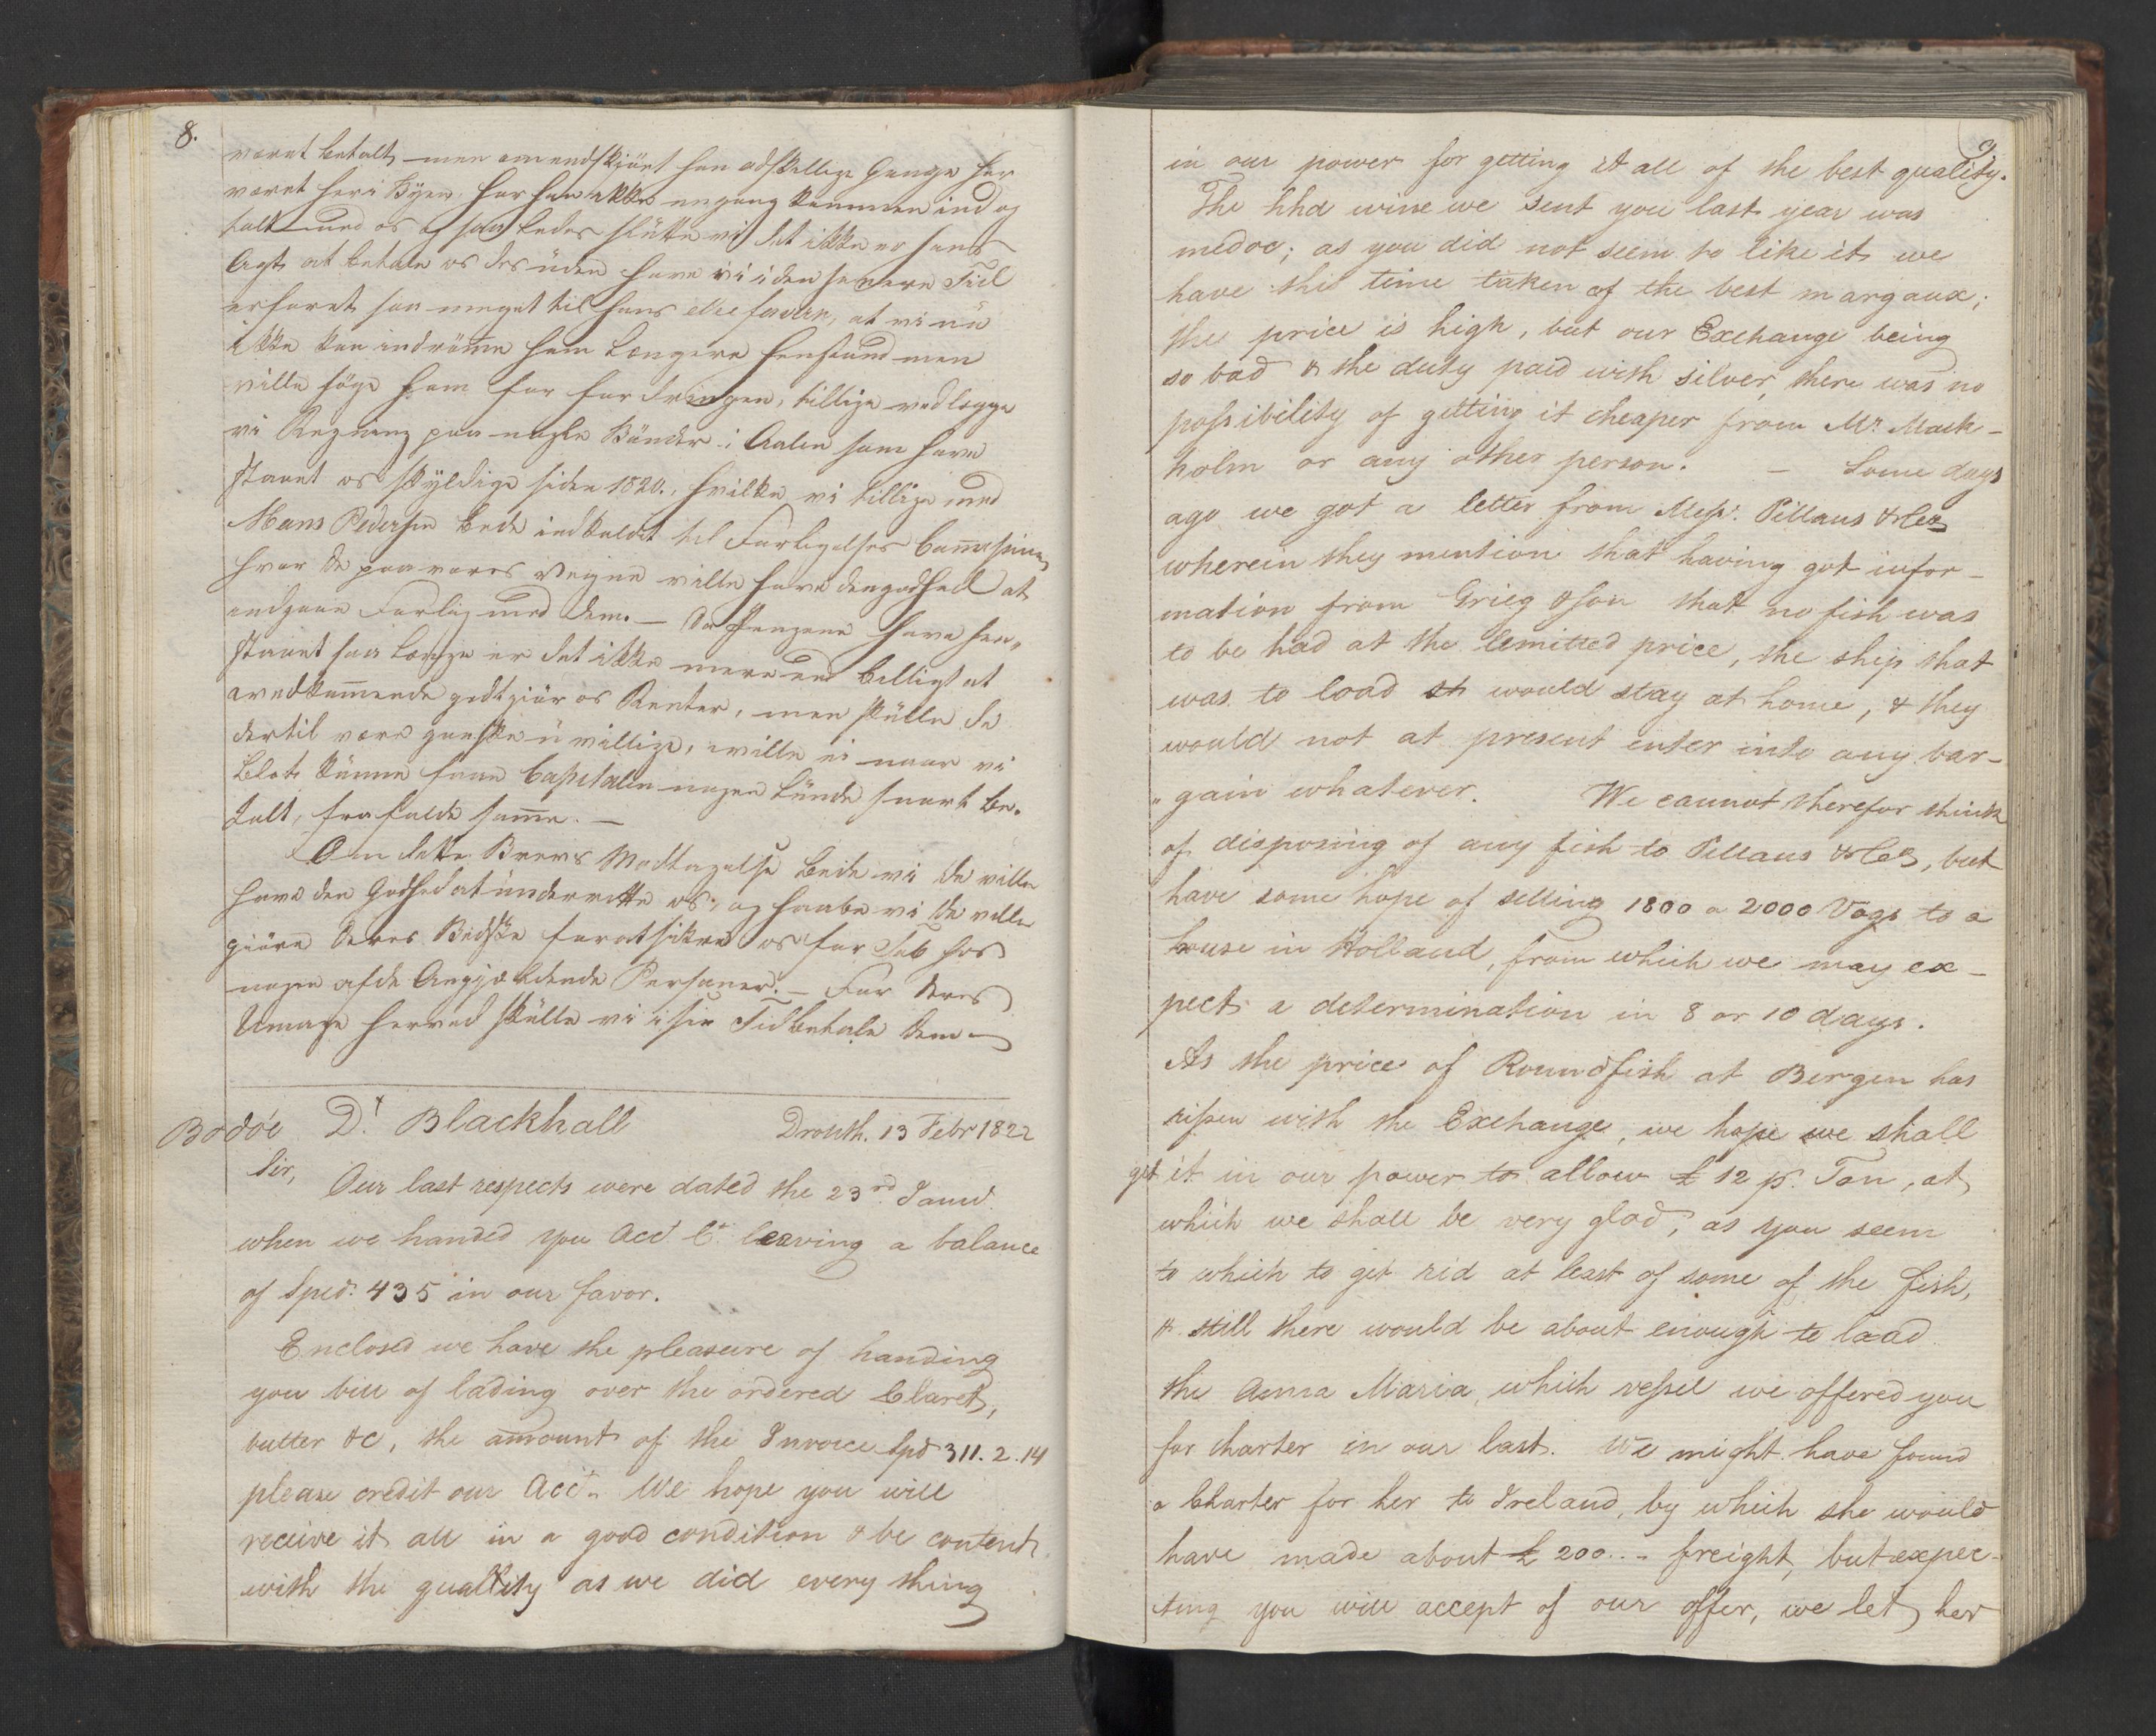 8.
været betalt, — men omendskiönt han adskellige Gange har
været her i Byen, har han ikke engang kommen ind og
talt med os og saaledes slutte vi det ikke er hans
Agt at betale os desuden have vi i den senere Tiid
erfaret saa meget til hans disefaveur, at vi nu
ikke kan indrömme ham længere Henstand men
ville söge ham for fordringen, tillige vedlegge
vi Regning paa nogle Bönder i Aalen som have
staaet os skyldige siden 1820., hvilke vi tillige med
Mons Pedersen bede indkaldet til Forligelses Commissionen
hvor De paa vores vegne ville have den godhed at
indgaae Forlig med dem. — Da Pengene have hen„
staaet saa længe er det ikke mere end billigt at
vedkommende godtgiör os Renter, men skulle de
dertil være ganske uvillige, ville vi naar vi
blot kunne faae Capitalen nogenlunde snart be„
talt, frafalde samme. —
Om dette Brevs Modtagelse bede vi De ville
have den Godhed at underrette os, og haabe vi De ville
giöre Deres Bedste for at sikre os for Tab hos
nogen af de Angjældende Personer. — For Deres
Umage herved skulle vi i sin Tid betale Dem —
Bodöe Dr. Blackhall Dronth. 13 Febr 1822
Sir,
Our last respects were dated the 23rd Janu'.
when we handed you Acct Ct. leaving a balance
of Spd. 435 in our favor.
Enclosed we have the pleasure of handing
you bill of lading over the ordered Claret,
butter &c, the amount of the Invoice Spd 311.2.14
please credit our Acct. We hope you will
receive it all in a good condition & be content
with the quality as we did every thing
9
in our power for getting it all of the best quality.
The hhd wine we sent you last year was
medoc; as you did not seem to like it we
have this time taken of the best margaux;
the price is high, but our Exchange being
so bad & the duty paid with silver, there was no
possibility of getting it cheaper from Mr. Mack-
holm or any other person. — Some days
ago we got a letter from Messr. Pillans & Co
wherein they mention that having got infor-
mation from Grieg & son that no fish was
to be had at the lemitted price, the ship that
was to load it would stay at home, & they
would not at present enter into any bar-
„gain whatever. We cannot therefor think
of disposing of any fish to Pillans & Co, but
have some hope of selling 1800 a 2000 Vogs to a
house in Holland, from which we may ex-
pect a determination in 8 or 10 days.
As the price of Roundfish at Bergen has
rissen with the Exchange, we hope we shall
get it in our power to allow £ 12 p. Ton, at
which we shall be very glad, as you seem
to which to get rid at least of some of the fish,
& still there would be about enough to load
the Anna Maria, which vessel we offered you
for charter in our last. We might have found
a Charter for her to Ireland, by which she would
have made about £ 200.. - freight, but expec-
ting you will accept of our offer, we let her